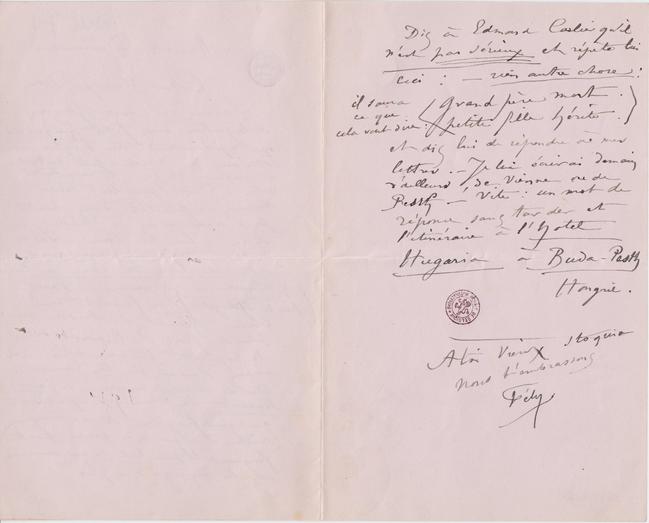 Dis à Edmond Carlier qu'il
n'est pas sérieux et répète lui
ceci : – rien autre chose :
il saura
ce que
cela veut dire.
(Grand père mort.
petite fille hérite.)
et dis lui de répondre à mes
lettres. – Je lui écrirai demain
d'ailleurs de Vienne ou de
Pesth – Vite : un mot de
réponse sans tarder et
l'itinéraire à l'Hotel
Hugaria à Buda-Pesth
Hongrie.
A toi Vieux
Nous t'embrassons
Fély